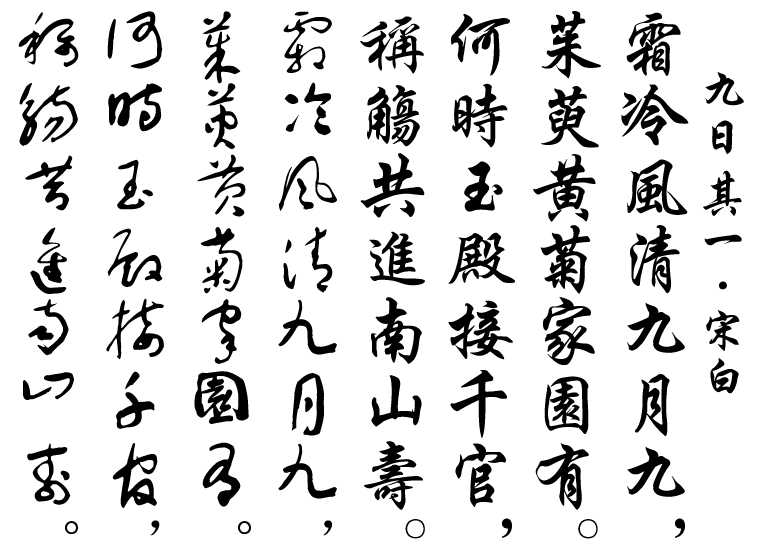 九日其一·宋白
霜冷風清九月九，
茱萸黃菊家園有。
何時玉殿接千官，
稱觴共進南山壽。
霜冷風清九月九，
茱萸黃菊家園有。
何時玉殿接千官，
稱觴共進南山壽。